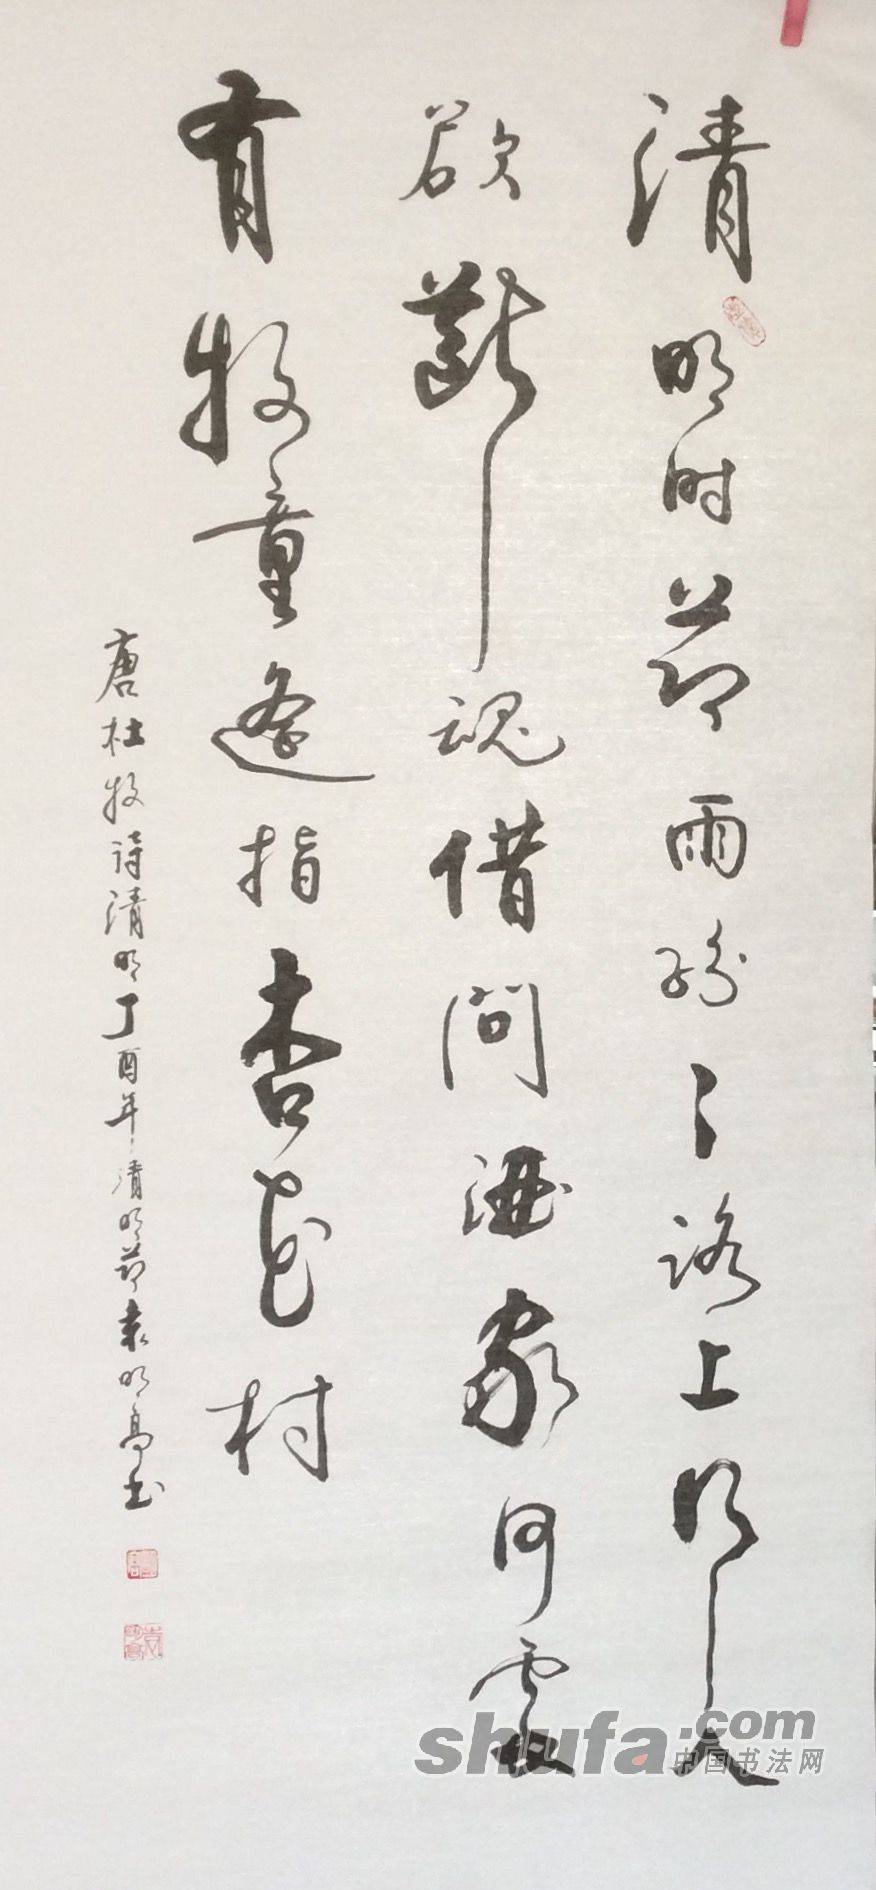 清明时节雨纷々路上行人
欲断魂借问酒家何处
有牧童遥指杏花村
唐杜牧诗清明丁酉年清明节袁明亮书
shufa.com
中国书法网